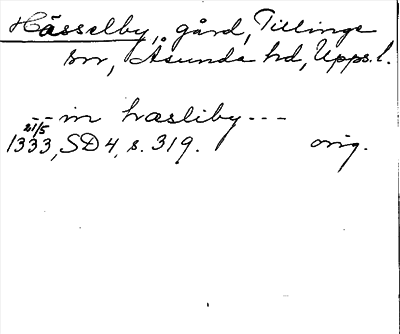 Hässelby, gård, Tillinge
sn, Åsunda hd, Upps. l.
-- in hæsliby ---
21/5
1333, SD 4, s. 319. orig.